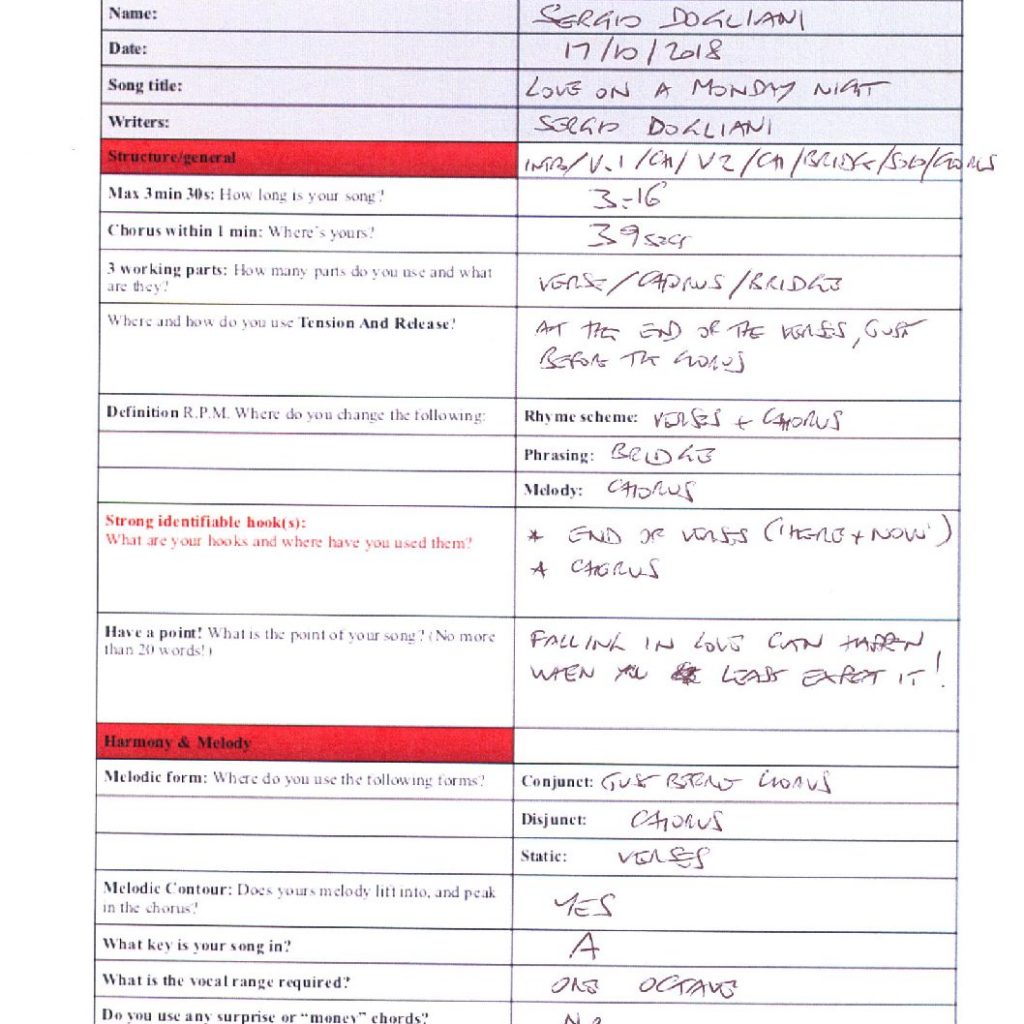 Name: SERGIO DOGLIANI
Date: 17/10/2018
Song title: LOVE ON A MONDAY NIGHT
Writers: SERGIO DOGLIANI
Structure/general INTRO/V.1/CH/V2/CH/BRIDGE/SOLO/CHORUS
Max 3min 30s: How long is your song? 3-16
Chorus within 1 min: Where's yours? 39 secs
3 working parts: How many parts do you use and what
are they?
VERSE/CHORUS/BRIDGE
Where and how do you use Tension And Release?
AT THE END OF THE VERSES, GUST
BEFORE THE CHORUS
Definition R.P.M. Where do you change the following:
Rhyme scheme: VERSES + CHORUS
Phrasing: BRIDGE
Melody: CHORUS
Strong identifiable hook(s):
What are your hooks and where have you used them?
* END OF VERSES ('HERE + NOW')
* CHORUS
Have a point! What is the point of your song? (No more
than 20 words!)
FALLING IN LOVE CAN HAPPEN
WHEN YOU LEAST EXPECT IT!
Harmony & Melody
Melodic form: Where do you use the following forms?
Conjunct: GUST BEFORE CHORUS
Disjunct: CHORUS
Static: VERSES
Melodic Contour: Does yours melody lift into, and peak
in the chorus?
YES
What key is your song in? A
What is the vocal range required? ONE OCTAVE
Do you use any surprise or "money" chords? No